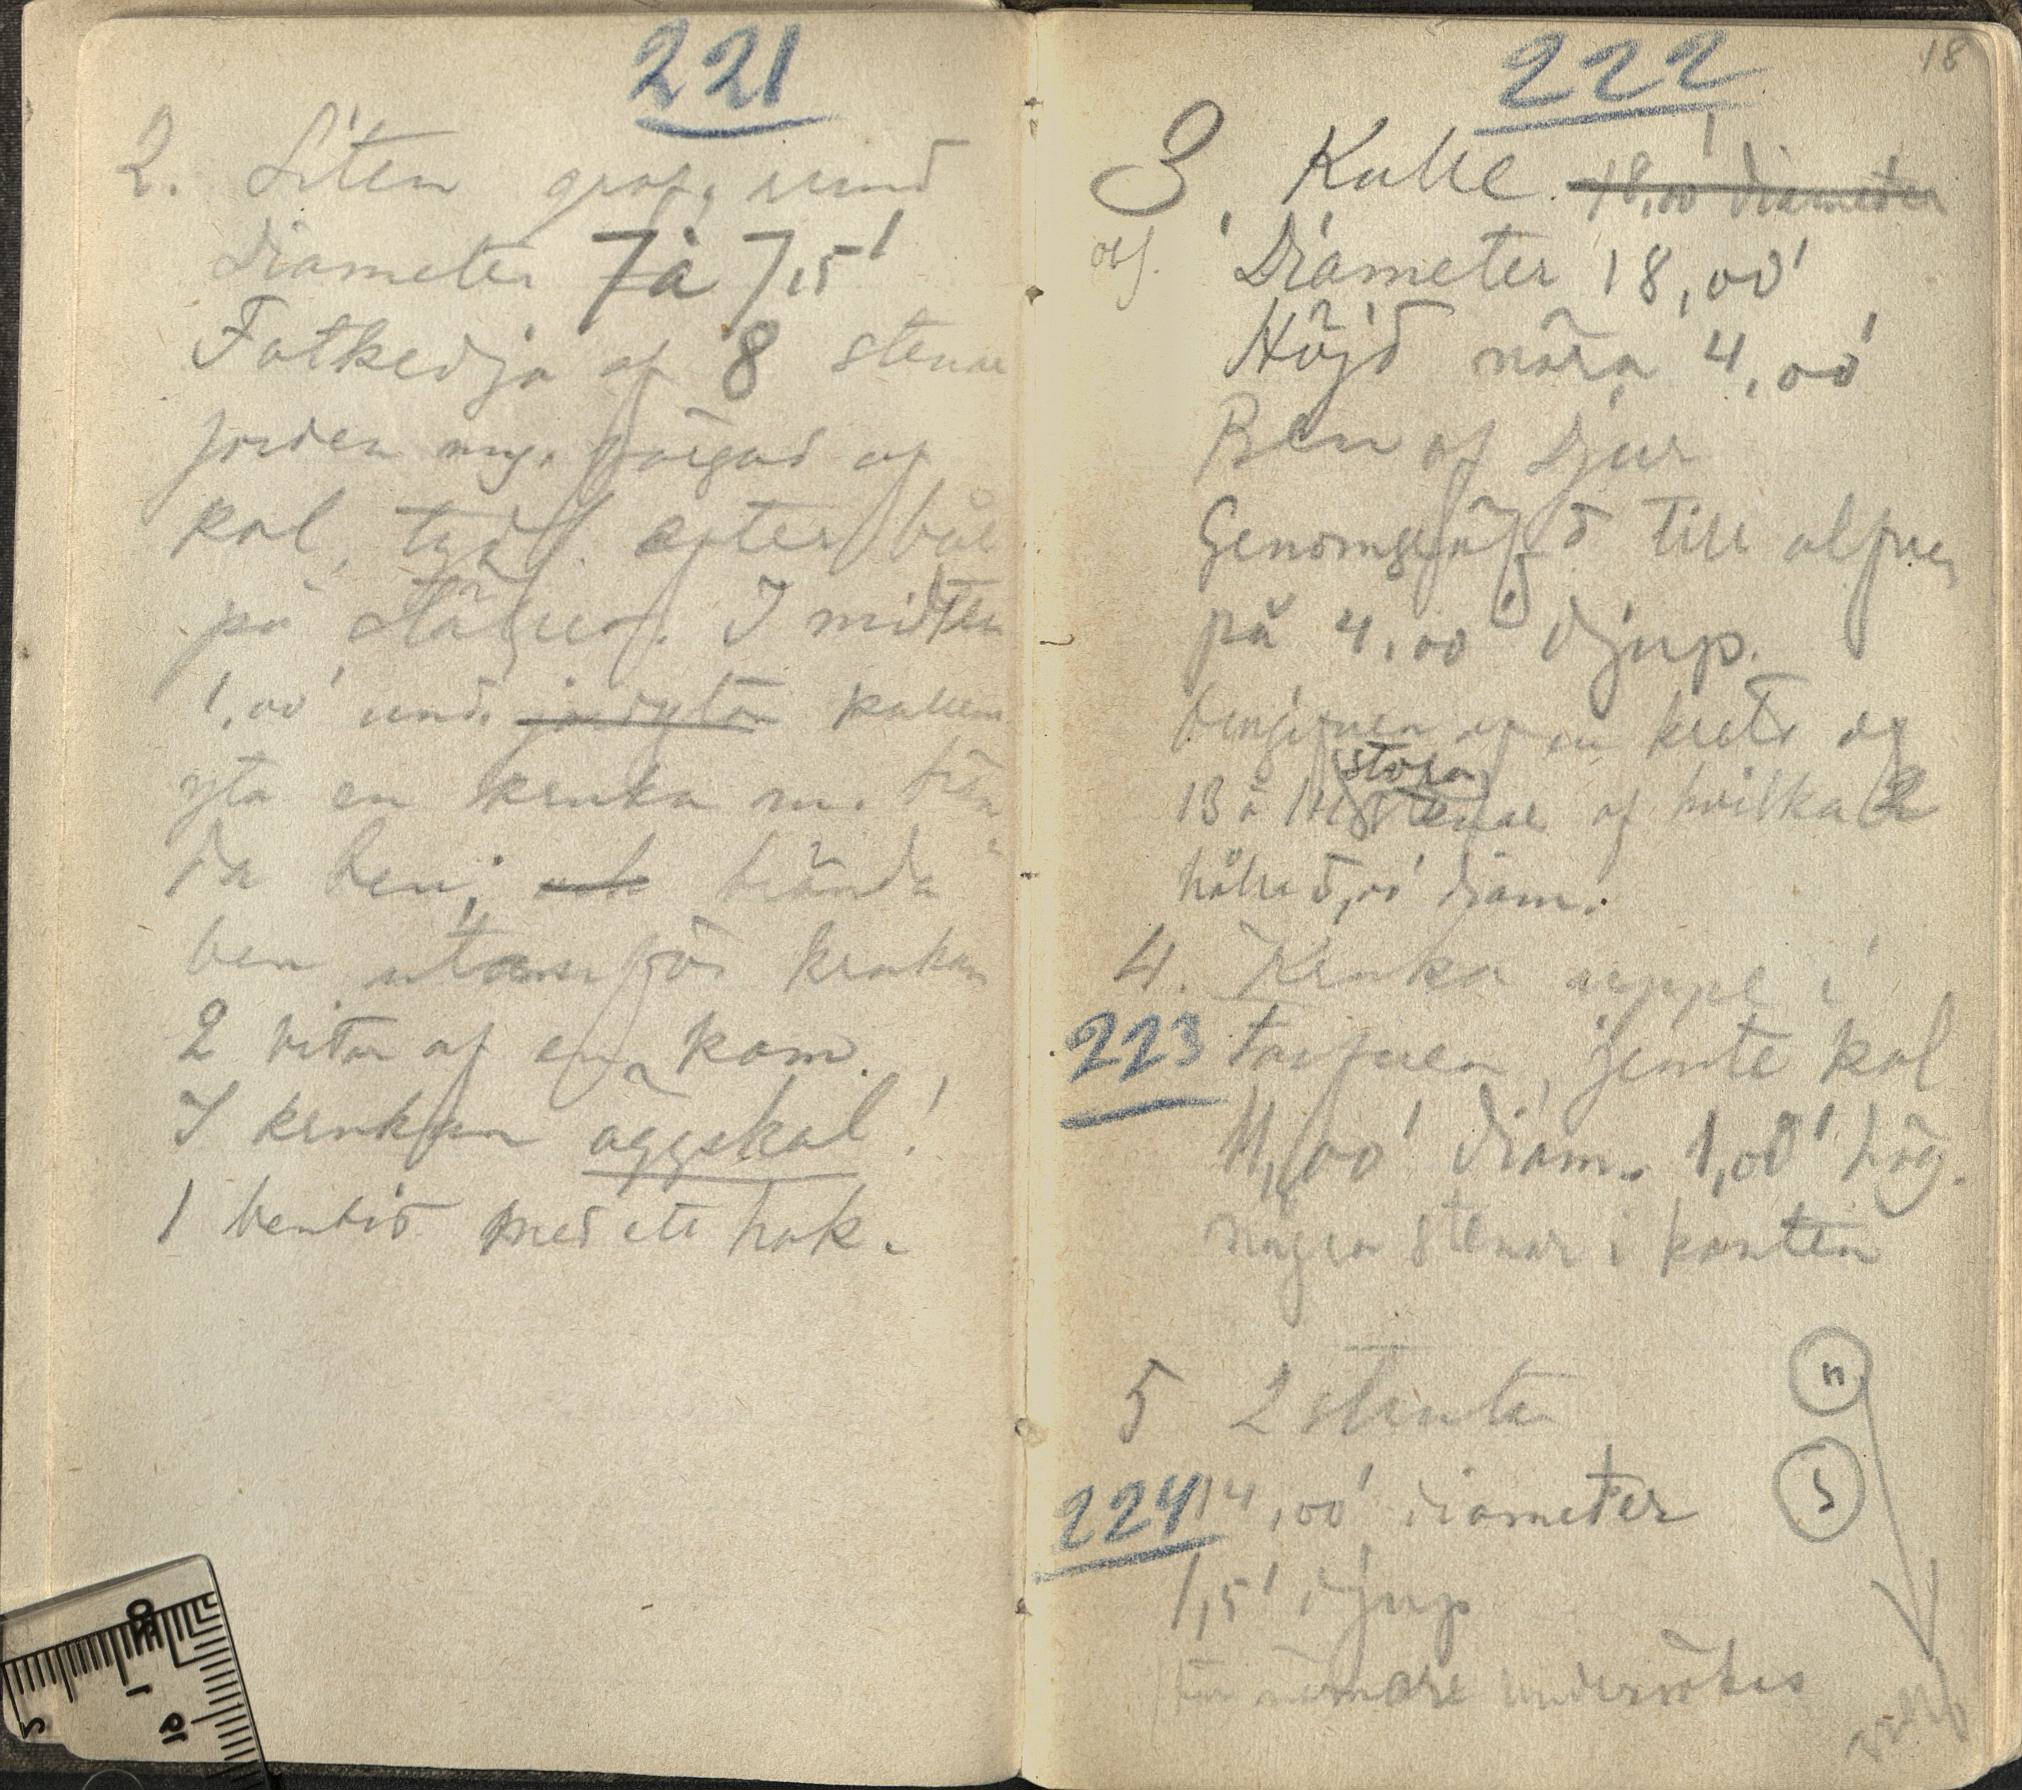 221
2. Liten graf, rund
diameter 7 à 7,5'
Fotkedja af 8 stenar
jorden myc. färgad af
kol, tydl. efter bål
på stället. I midten
1,00' und. jordytan kullens
yta en kruka m. brän
da ben; och brända
ben utanför krukan
2 bitar af en kam.
I krukan äggskal!
1 benbit med ett hak.
222
18
3. Kulle. 18,00' diameter
obs. Diameter 18,00'
Höjd nära 4,00'
Ben af djur
Genomgräfd till alfven
på 4,00' djup.
omgifven af en krets af
stora
13 à 14 stenar af hvilka 2
hålla 5,00' diam.
4. Kruka uppe i
223 torfven, jemte kol
11,00' diam. 1,00' hög.
några stenar i kanten
5 2 stenta
n
s
224 14,00' diameter
1,5' djup
bör närmare undersökas